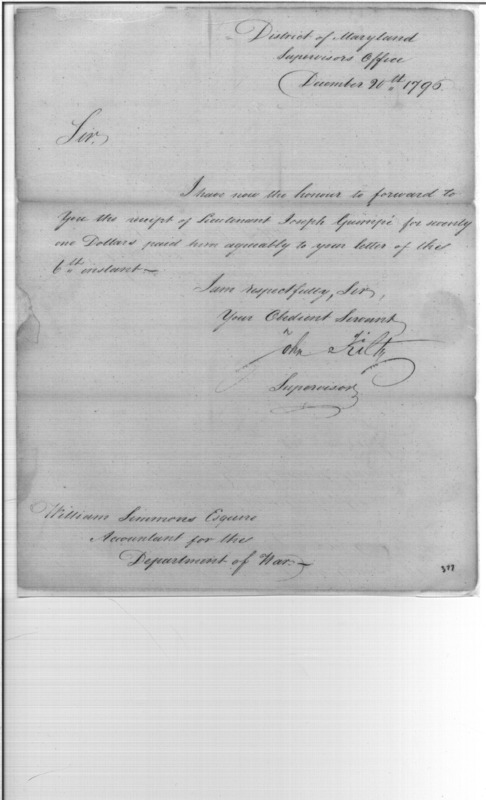 District of Maryland
Supervisors Office
December 20th 1796
Sir,
I have now the honour to forward to
you the receipt of Lieutenant Joseph for twenty
one Dollars paid him agreeably to your letter of the
6th instant
I am respectfully, Sir,
Your Obedient Servant
John Kilty
Supervisor
William Simmons Esquire
Accountant for the
Department of War.